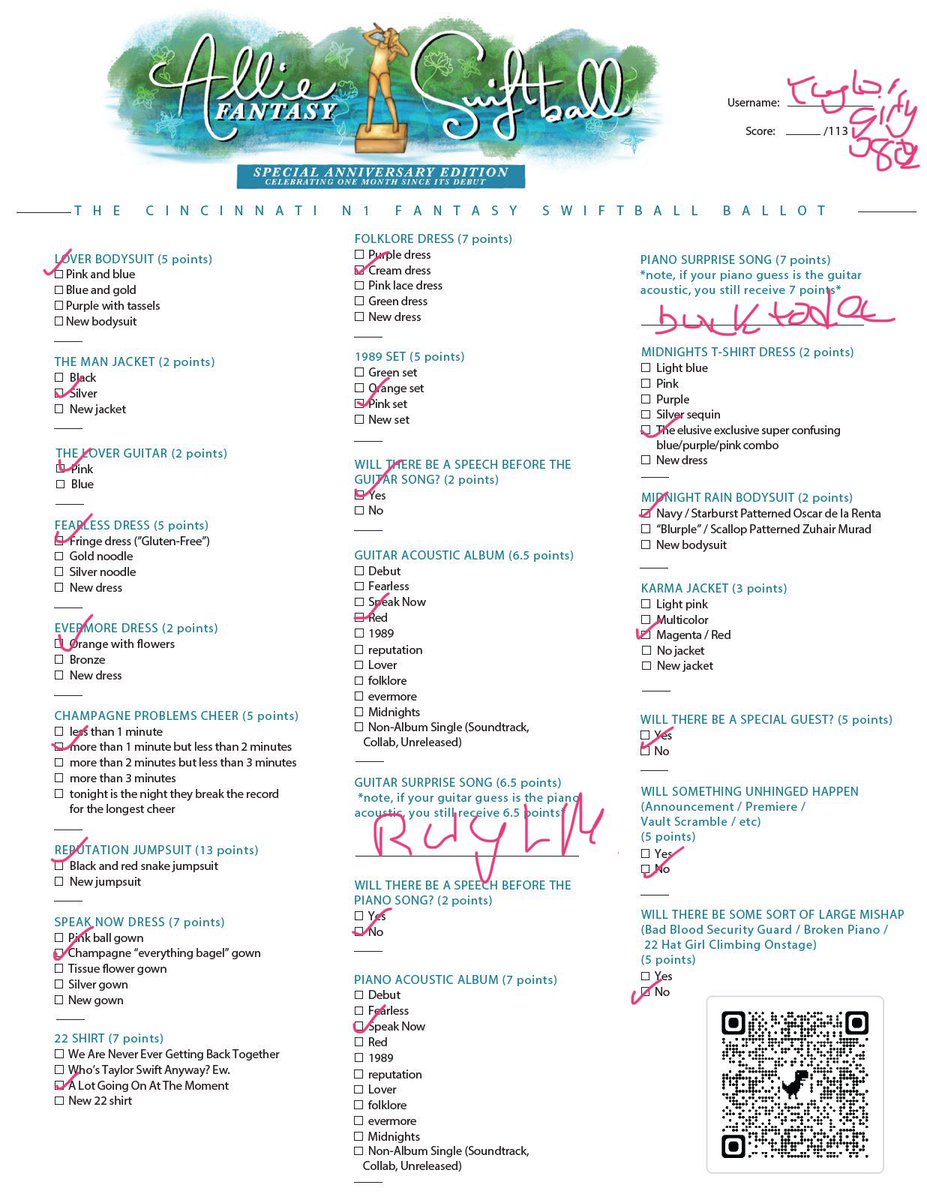 Allie
FANTASY
Swiftball
SPECIAL ANNIVERSARY EDITION
CELEBRATING ONE MONTH SINCE ITS DEBUT
Username:
Score: _____ /113
THE CINCINNATI N1 FANTASY SWIFTBALL BALLOT
LOVER BODYSUIT (5 points)
Pink and blue
Blue and gold
Purple with tassels
New bodysuit
THE MAN JACKET (2 points)
Black
Silver
New jacket
THE LOVER GUITAR (2 points)
Pink
Blue
FEARLESS DRESS (5 points)
Fringe dress ("Gluten-Free")
Gold noodle
Silver noodle
New dress
EVERMORE DRESS (2 points)
Orange with flowers
Bronze
New dress
CHAMPAGNE PROBLEMS CHEER (5 points)
less than 1 minute
more than 1 minute but less than 2 minutes
more than 2 minutes but less than 3 minutes
more than 3 minutes
tonight is the night they break the record
for the longest cheer
REPUTATION JUMPSUIT (13 points)
Black and red snake jumpsuit
New jumpsuit
SPEAK NOW DRESS (7 points)
Pink ball gown
Champagne "everything bagel" gown
Tissue flower gown
Silver gown
New gown
22 SHIRT (7 points)
We Are Never Ever Getting Back Together
Who's Taylor Swift Anyway? Ew.
A Lot Going On At The Moment
New 22 shirt
FOLKLORE DRESS (7 points)
Purple dress
Cream dress
Pink lace dress
Green dress
New dress
1989 SET (5 points)
Green set
Orange set
Pink set
New set
WILL THERE BE A SPEECH BEFORE THE
GUITAR SONG? (2 points)
Yes
No
GUITAR ACOUSTIC ALBUM (6.5 points)
Debut
Fearless
Speak Now
Red
1989
reputation
Lover
folklore
evermore
Midnights
Non-Album Single (Soundtrack,
Collab, Unreleased)
GUITAR SURPRISE SONG (6.5 points)
*note, if your guitar guess is the piano
acoustic, you still receive 6.5 points*
WILL THERE BE A SPEECH BEFORE THE
PIANO SONG? (2 points)
Yes
No
PIANO ACOUSTIC ALBUM (7 points)
Debut
Fearless
Speak Now
Red
1989
reputation
Lover
folklore
evermore
Midnights
Non-Album Single (Soundtrack,
Collab, Unreleased)
PIANO SURPRISE SONG (7 points)
*note, if your piano guess is the guitar
acoustic, you still receive 7 points*
MIDNIGHTS T-SHIRT DRESS (2 points)
Light blue
Pink
Purple
Silver sequin
The elusive exclusive super confusing
blue/purple/pink combo
New dress
MIDNIGHT RAIN BODYSUIT (2 points)
Navy / Starburst Patterned Oscar de la Renta
"Blurple" / Scallop Patterned Zuhair Murad
New bodysuit
KARMA JACKET (3 points)
Light pink
Multicolor
Magenta / Red
No jacket
New jacket
WILL THERE BE A SPECIAL GUEST? (5 points)
Yes
No
WILL SOMETHING UNHINGED HAPPEN
(Announcement / Premiere /
Vault Scramble / etc)
(5 points)
Yes
No
WILL THERE BE SOME SORT OF LARGE MISHAP
(Bad Blood Security Guard / Broken Piano /
22 Hat Girl Climbing Onstage)
(5 points)
Yes
No